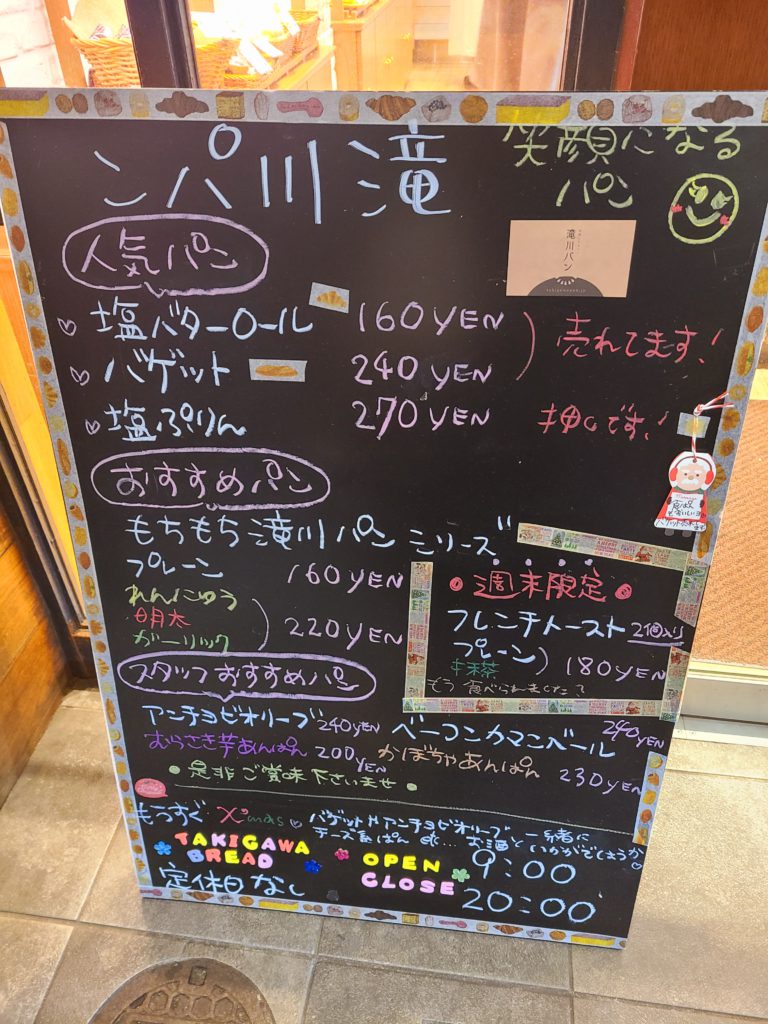 ンパ川滝
笑顔になる
パン
滝川パン
人気パン
塩バターロール 160YEN
バゲット 240YEN
売れてます!
塩ぷりん 270YEN 押しです!
おすすめパン
もちもち滝川パンシリーズ
プレーン 160YEN
れんにゅう
明太
ガーリック
220YEN
週末限定
フレンチトースト 2個入り
プレーン
抹茶
180YEN
もう食べられましたか?
スタッフおすすめパン
アンチョビオリーブ 240YEN
ベーコンカマンベール 240YEN
むらさき芋あんぱん 200YEN
かぼちゃあんぱん 230YEN
是非ご賞味下さいませ
もうすぐ X'mas
バゲットやアンチョビオリーブ、一緒に
チーズ系ぱん etc... お酒といかがでしょうか
TAKIGAWA
BREAD
OPEN 9:00
CLOSE 20:00
定休日なし